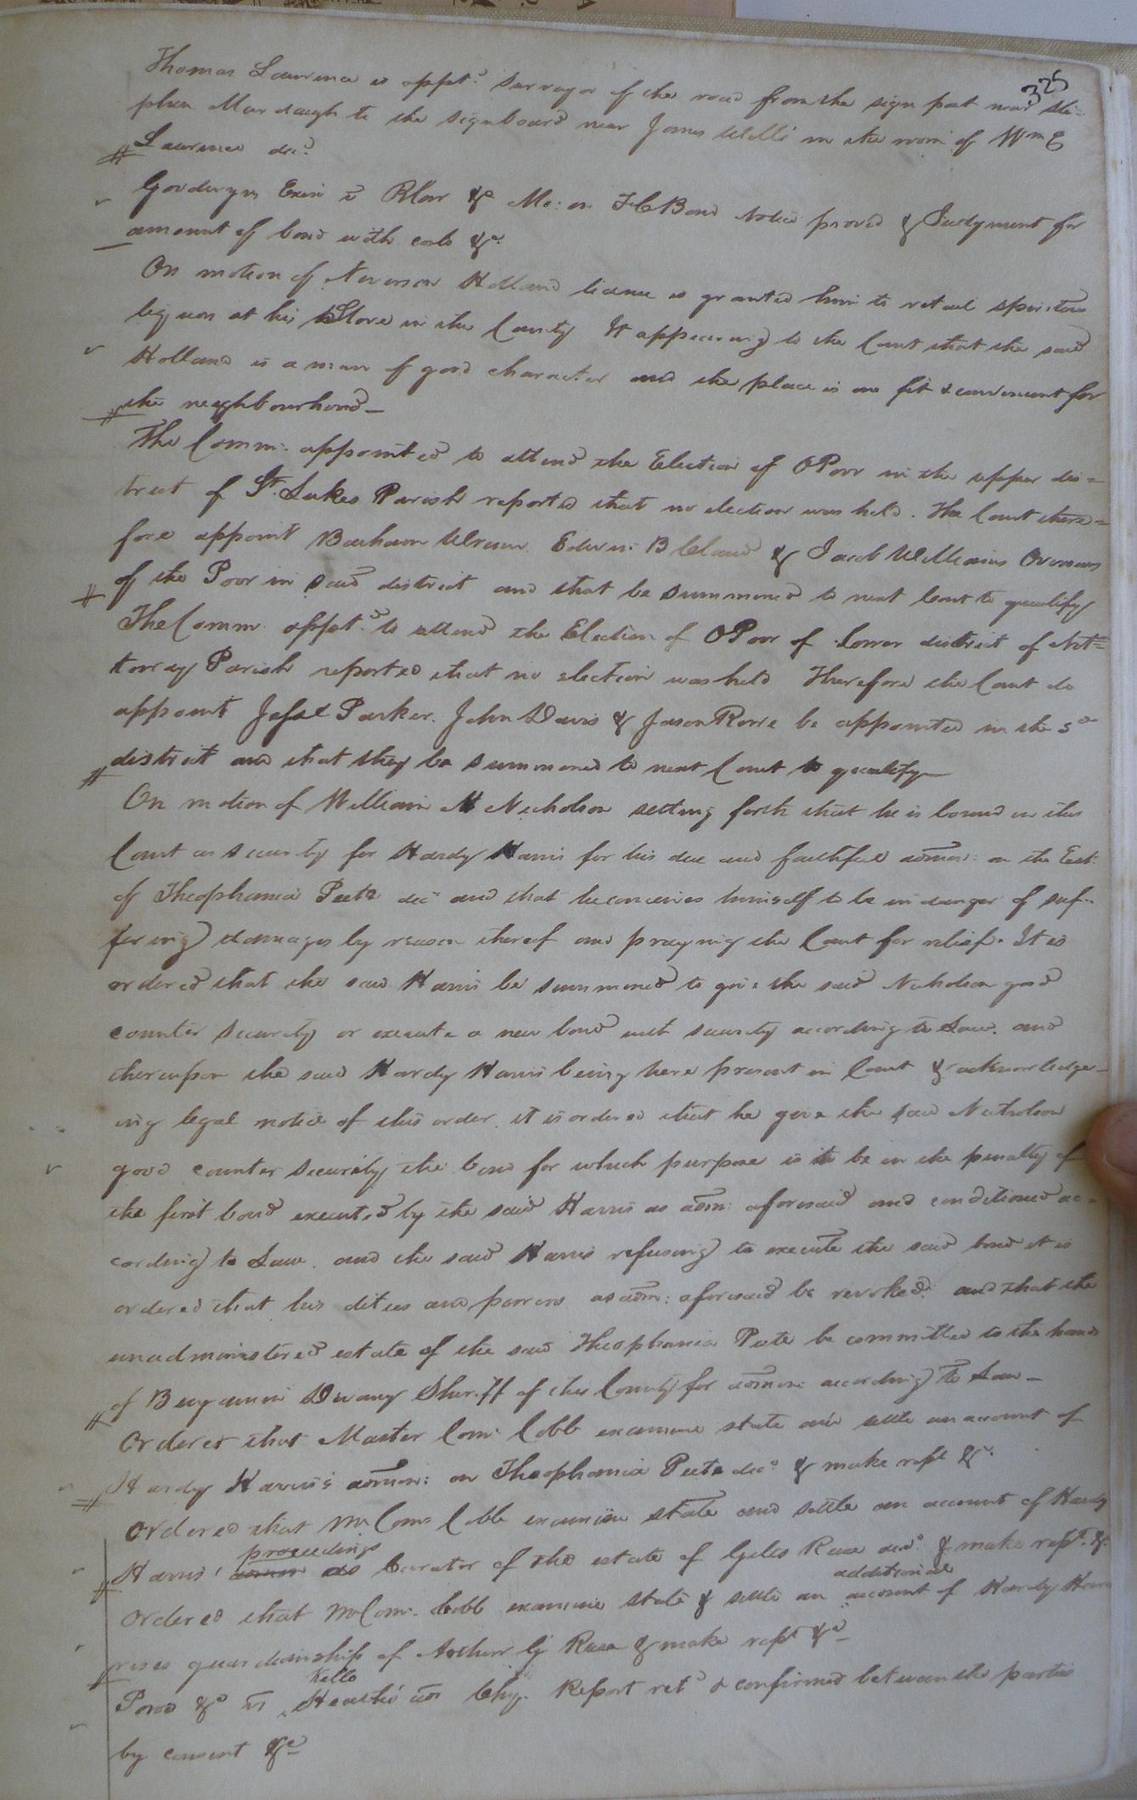 325
Thomas Lawrence is appt.d Surveyor of the road from the sign post near Ste=
phen Murdaugh to the signboard near James Wills in the room of Wm E
Lawrence dec.d
Goodwyn Exen vs Blow &c Mo: on F C Bond Notice proved & Judgment for
amount of bond with costs &c.
On motion of Holland licence is granted him to retail spiritous
liquors at his Store in the County It appearing to the Court that the said
Holland is a man of good character and the place is one fit & convenient for
the neighbourhood
The Comm:s appointed to attend the Election of OPoor in the upper dis=
trict of St. Lukes Parish reported that no election was held. The Court there=
fore appoint Urquhart Edwin B Claud & Jacob Williams Overseers
of the Poor in said district and that be summoned to next Court to qualify
The Comm appt.d to attend the Election of OPoor of Lower district of Not=
toway Parish reported that no election was held Therefore the Court do
appoint Parker. John Davis & Jason Rowe be appointed in the sd
district and that they be summoned to next Court to qualify
On motion of William N Nicholson setting forth that he is bound in this
Court as security for Hardy Harris for his due and faithful admon: on the Est:
of Theophania Peete dec.d and that he conceives himself to be in danger of suf-
fering damages by reason thereof and praying the Court for relief. It is
ordered that the said Harris be summoned to give the said Nicholson good
counter security or execute a new bond with security according to Law. and
thereupon the said Hardy Harris being here present in Court & acknowledge-
ing legal notice of this order. it is ordered that he give the said Nicholson
good counter security the bond for which purpose is to be in the penalty of
the first bond executed by the said Harris as adm: aforesaid and conditioned ac-
cording to Law. and the said Harris refusing to execute the said bond it is
ordered that his and powers as adm: aforesaid be revoked: and that the
unadministered estate of the said Theophania Peete be committed to the hands
of Benjamin Devany Sheriff of this County for admon: according to Law
Ordered that Master Com: Cobb examine state and settle an account of
Hardy Harris's admon: on Theophania Peete dec.d & make rept &c.
Ordered that M Com: Cobb examine state and settle an account of Hardy
proceedings
Harris' as Curator of the estate of Giles Rease dec.d & make rept. &c
additional
Ordered that M Com: Cobb examine state & settle an account of Hardy Har
rises guardianship of Arthur G Rease & make rept &c
Kello
&c vs Heaths adm Chy. Report ret.d & confirmed between the parties
by consent &c